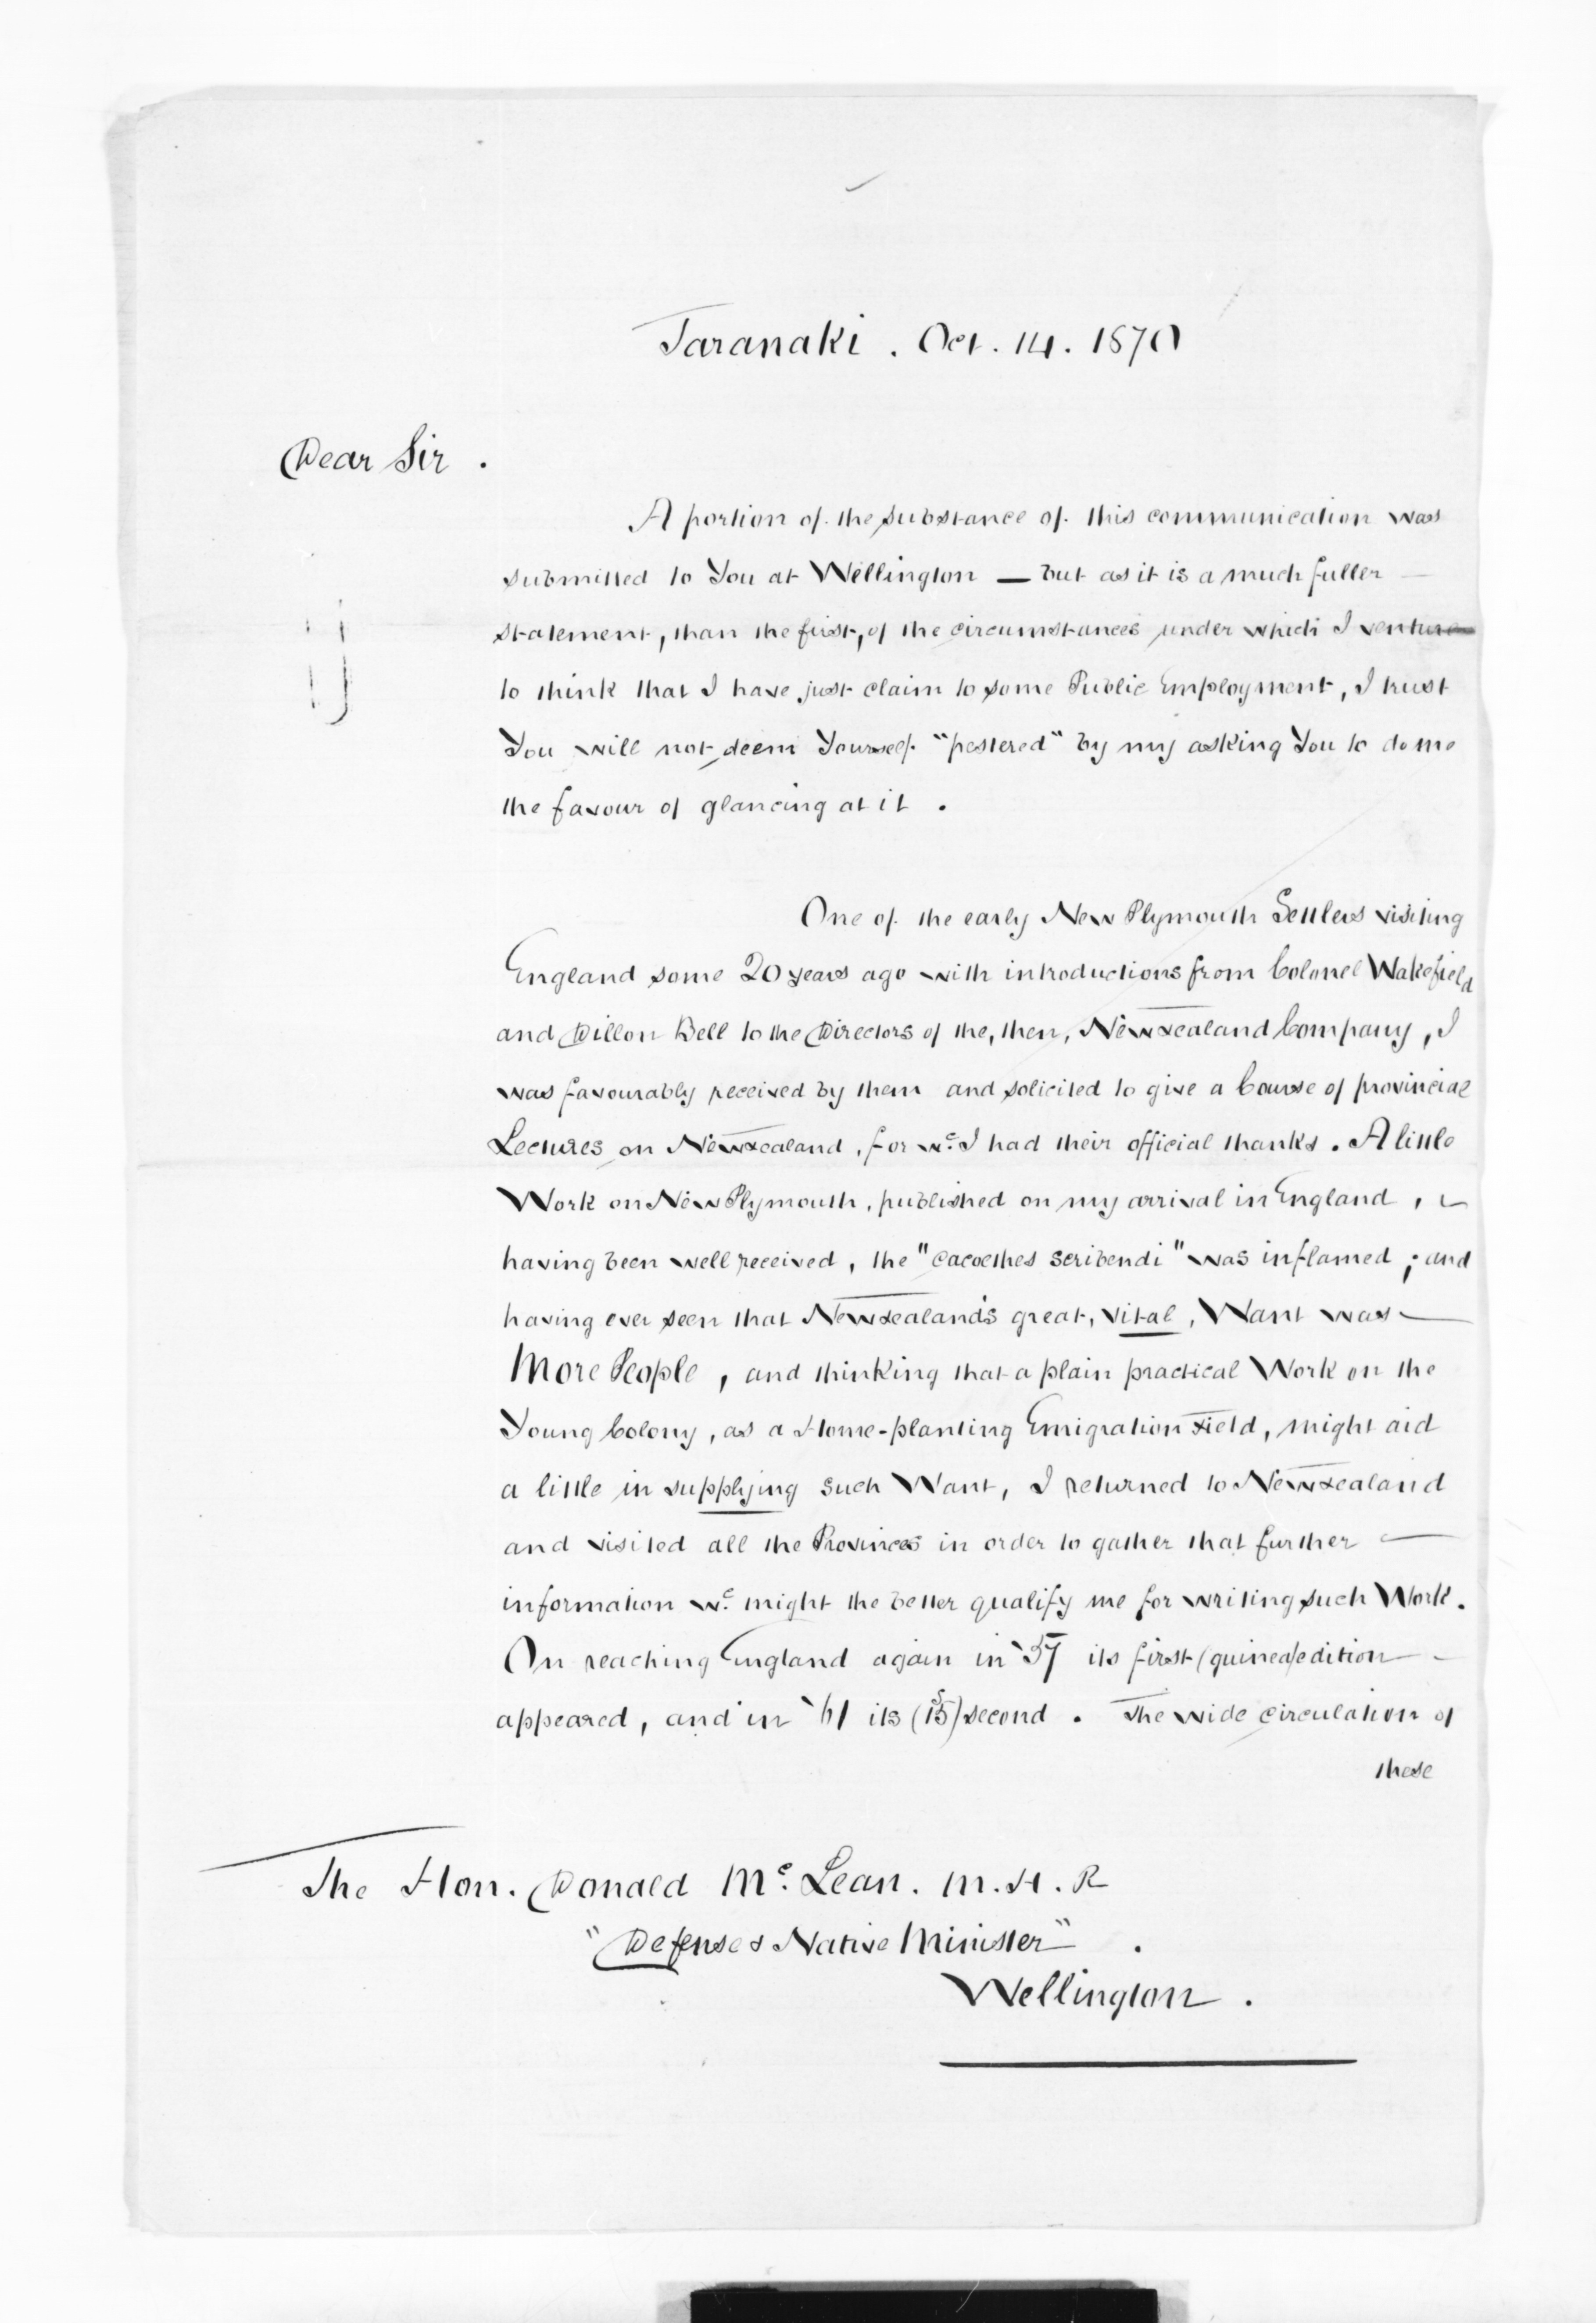 Taranaki . Oct. 14. 1870
Dear Sir .
A portion of the substance of this communication was
submitted to You at Wellington — but as it is a much fuller —
statement, than the first, of the circumstances under which I venture
to think that I have just claim to some Public Employment, I trust
You will not deem Yourself "pestered" by my asking You to do me
the favour of glancing at it .
One of the early New Plymouth Settlers visiting
England some 20 years ago with introductions from Colonel Wakefield
and Dillon Bell to the Directors of the, then, New Zealand Company, I
was favourably received by them and solicited to give a Course of provincial
Lectures on New Zealand, for wc. I had their official thanks. A little
Work on New Plymouth, published on my arrival in England,
having been well received, the "cacoethes scribendi" was inflamed ; and
having ever seen that New Zealand's great, vital, Want was —
More People, and thinking that a plain practical Work on the
Young Colony, as a Home-planting Emigration Field, might aid
a little in supplying such Want, I returned to New Zealand
and visited all the Provinces in order to gather that further —
information wc. might the better qualify me for writing such Work.
On reaching England again in '57 its first (guinea) edition —
appeared, and in '61 its (15s) second . The wide circulation of
these
The Hon. Donald Mc. Lean. M.H.R
"Defense & Native Minister" .
Wellington .